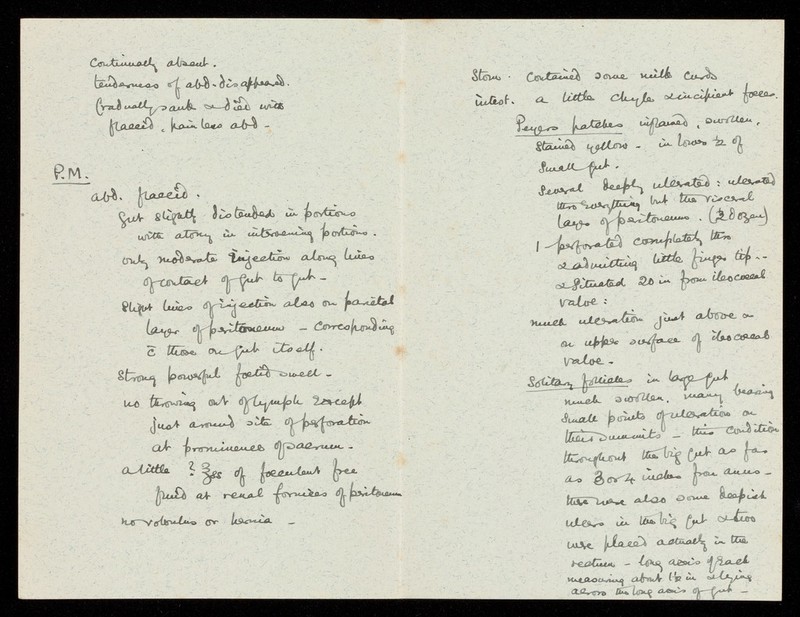 continually absent.
tenderness of abd. disappeared.
Gradually sank & died with
flaccid, painless abd -
P.M.
abd. flaccid.
Gut slightly distended in portions
with atony in intervening portions.
only moderate injection along lines
of contact of gut to gut -
Slight lines of injection also on parietal
layer of peritoneum - corresponding
c̄ those on gut itself.
Strong powerful foetid smell -
no throwing out of lymph except
just around site of perforation
at prominence of sacrum -
a little ? ℥ss of foeculent free
fluid at renal fornices of peritoneum
no volvulus or hernia -
Stom. Contained some milk curds
intest. a little chyle & incipient foeces.
Peyers patches inflamed, swollen,
stained yellow - in lower ½ of
small gut.
Several deeply ulcerated: ulcerated
thro everything but the visceral
layer of peritoneum. (½ dozen)
1 perforated completely thro
& admitting little finger tip --
& situated 20 in from ileocoecal
valve:
much ulceration just above &
on upper surface of ileocoecal
valve -
Solitary follicles in large gut
much swollen, many bearing
small points of ulceration on
their summits - this condition
throughout the big gut as far
as 3 or 4 inches from anus -
there were also some deepish
ulcers in the big gut & two
were placed actually in the
rectum - long axis of each
measuring about 1½ in & lying
across the long axis of gut -